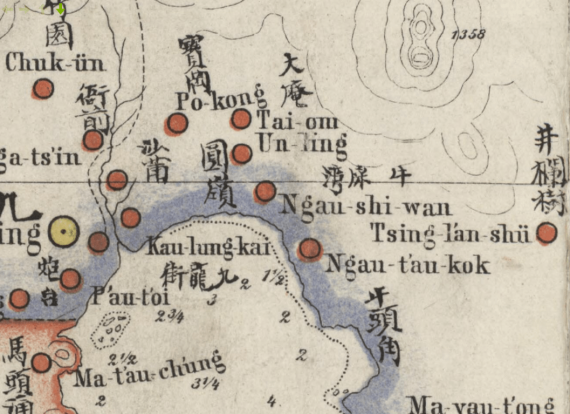 竹園
1358
Chuk-ün
寶岡
大庵
衙前
Po-kong
Tai-om
Un-ling
ga-ts'in
沙莆
圓嶺
牛屎灣
井欄樹
Ngau-shi-wan
九
ing
Tsing-lan-shü
Kau-lung-kai
Ngau-t'au-kok
九龍街
炮台
P'au-t'oi
1½
2
3
2¾
2
牛頭角
馬頭涌
2½
2
Ma-t'au-ch'ung
3¼
2
4
Ma-yau-t'ong